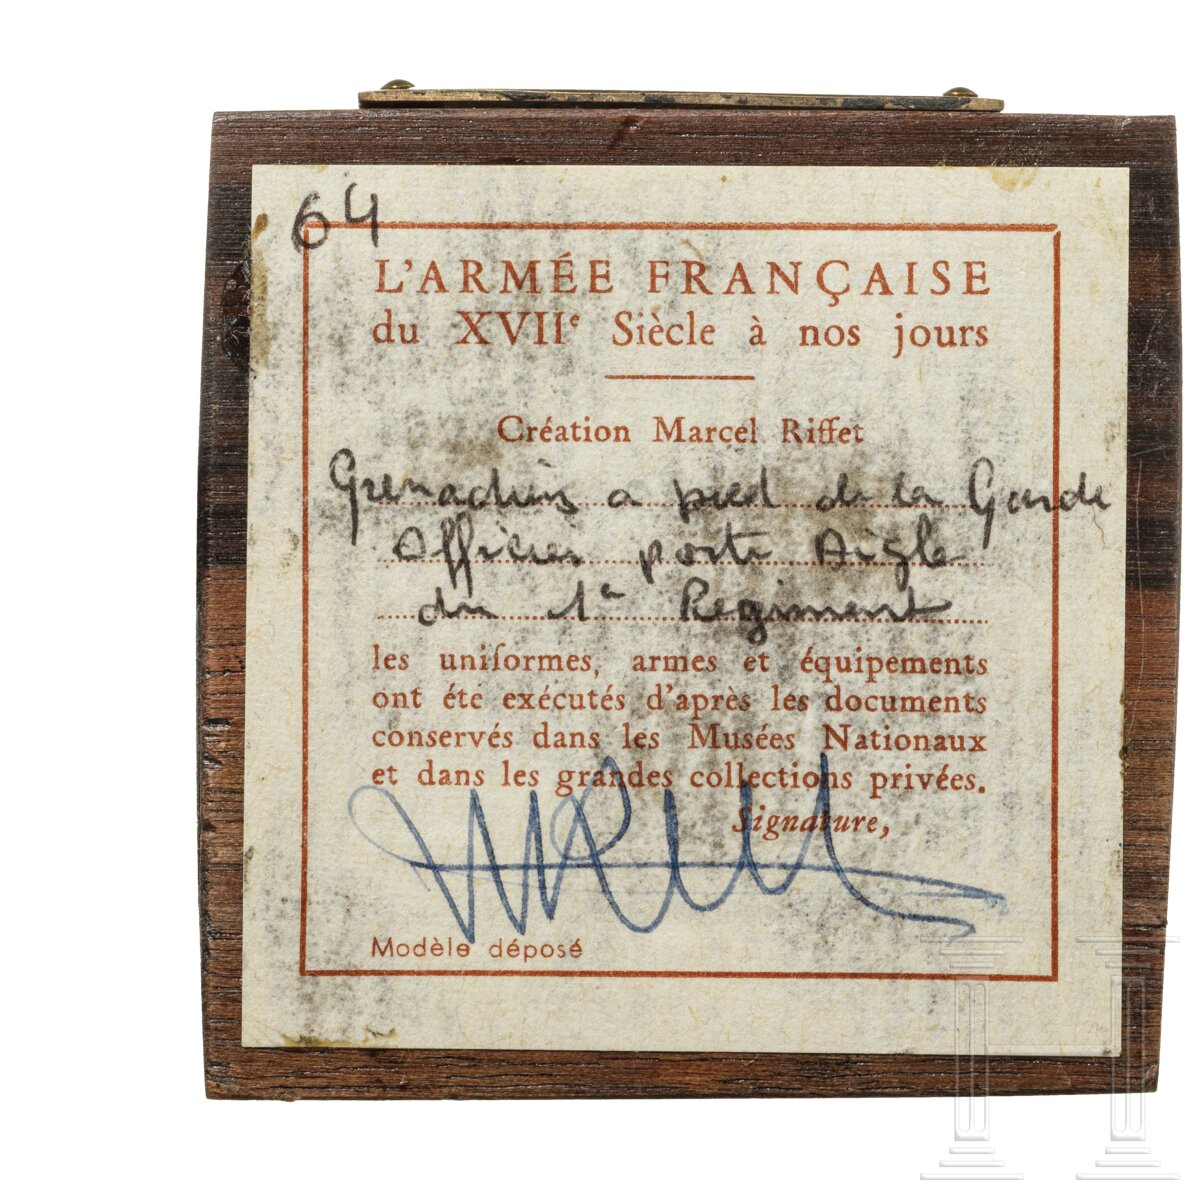 64
L'ARMÉE FRANÇAISE
du XVIIe Siècle à nos jours
Création Marcel Riffet
Grenadiers a pied de la Garde
Officier porte Aigle
du 1e Regiment
les uniformes, armes et équipements
ont éte exécutés d'après les documents
conservés dans les Musées Nationaux
et dans les grandes collections privées.
Signature,
Modèle déposé